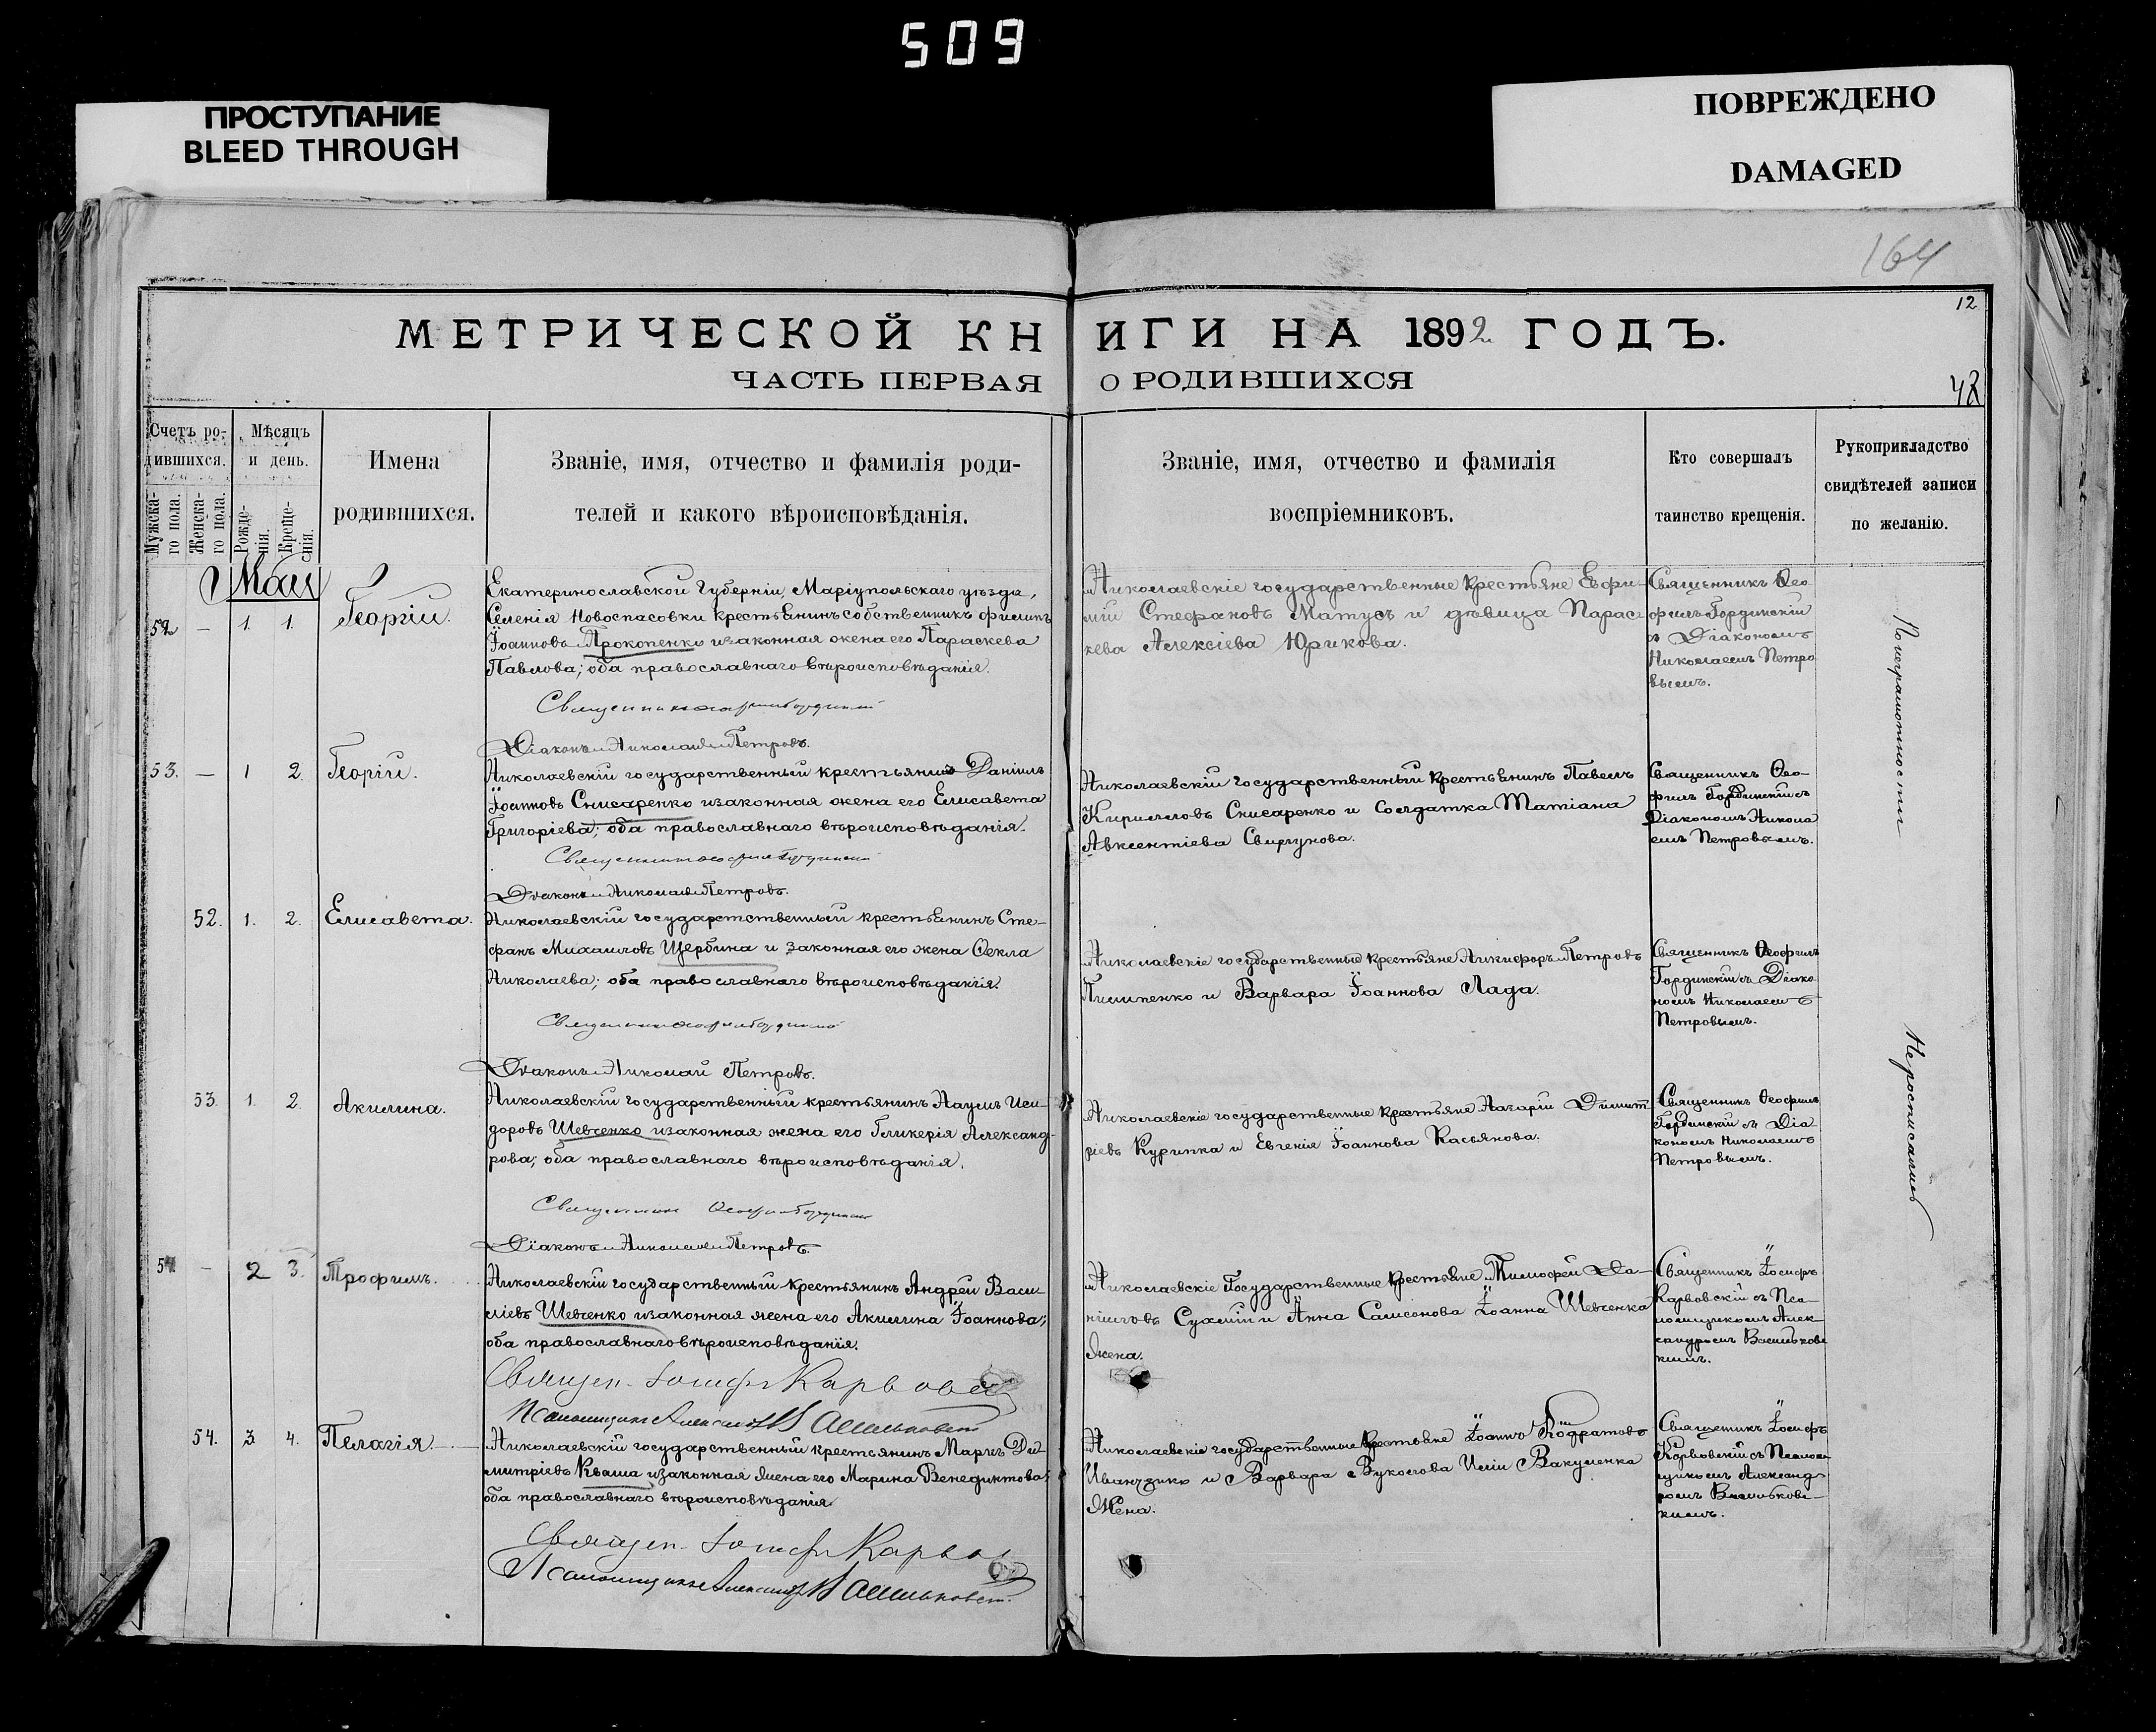 509
ПРОСТУПАНИЕ
BLEED THROUGH
ПОВРЕЖДЕНО
DAMAGED
164
12
МЕТРИЧЕСКОЙ КНИГИ НА 1892 ГОДЪ.
ЧАСТЬ ПЕРВАЯ О РОДИВШИХСЯ
42
Счетъ ро-
дившихся.
Мужска-
го пола.
Женска-
го пола.
Мѣсяцъ
и день.
Рожде-
нія.
Креще-
нія.
Имена
родившихся.
Званіе, имя, отчество и фамилія роди-
телей и какого вѣроисповѣданія.
Званіе, имя, отчество и фамилія
воспріемниковъ.
Кто совершалъ
таинство крещенія.
Рукоприкладство
свидѣтелей записи
по желанію.
Май
52 — 1. 1. Георгій.
Екатеринославской Губерніи, Маріупольскаго уѣзда,
Селенія Новоспасовки крестьянинъ собственникъ Филипъ
Іоанновъ Прокопенко и законная жена его Параскева
Павлова; оба православнаго вѣроисповѣданія.
Священникъ Ѳеофилъ Гординскій
Діаконъ Николай Петровъ.
Николаевскіе государственные крестьяне Евфи-
мій Стефановъ Матусъ и дѣвица Парас-
кева Алексіева Юрикова.
Священникъ Ѳео
филъ Гординскій
съ Діакономъ
Николаемъ Петро
вымъ.
53. — 1 2. Георгій.
Николаевскій государственный крестьянинъ Даніилъ
Снисаренко и законная жена его Елисавета
Григоріева; оба православнаго вѣроисповѣданія.
Священникъ Ѳеофилъ Гординскій
Діаконъ Николай Петровъ.
Николаевскій государственный крестьянинъ Павелъ
Кирилловъ Снисаренко и солдатка Татіана
Авксентіева Свиргунова.
Священникъ Ѳео-
филъ Гординскій съ
Діакономъ Никола
емъ Петровымъ.
52. 1. 2. Елисавета.
Николаевскій государтственный крестьянинъ Сте-
фанъ Михаиловъ Щербина и законная его жена Ѳекла
Николаева; оба православнаго вѣроисповѣданія.
Священникъ Ѳеофилъ Гординскій
Діаконъ Николай Петровъ.
Николаевскіе государственные крестьяне Никифоръ Петровъ
Пилипенко и Варвара Іоаннова Лада.
Священникъ Ѳеофилъ
Гординскій съ Діако
номъ Николаемъ
Петровымъ.
53. 1. 2. Акилина.
Николаевскій государственный крестьянинъ Наумъ Иси-
доровъ Шевченко и законная жена его Гликерія Александ-
рова; оба православнаго вѣроисповѣданія.
Священникъ Ѳеофилъ Гординскій
Діаконъ Николай Петровъ.
Николаевскіе государственные крестьяне Назарій Димит
ріевъ Курипка и Евгенія Іоаннова Касьянова.
Священникъ Ѳеофилъ
Гординскій съ Діа
кономъ Николаемъ
Петровымъ.
54. — 2 3. Трофимъ.
Николаевскій государственный крестьянинъ Андрей Васи-
ліевъ Шевченко и законная жена его Акилина Іоаннова;
оба православнаго вѣроисповѣданія.
Священ. Іосифъ Карвовскій
Псаломщикъ Александръ Васильковскій
Николаевскіе Государственные крестьяне Тимофей Да-
ніиловъ Сухій и Анна Самсонова Іоанна Шевченка
Жена.
Священникъ Іосифъ
Карвовскій съ Пса-
ломщикомъ Алек-
сандромъ Васильковс
кимъ.
54. 3. 4. Пелагія.
Николаевскій государственный крестьянинъ Маркъ Ди-
митріевъ Кваша и законная жена его Марина Венедиктова;
оба православнаго вѣроисповѣданія
Священ. Іосифъ Карвовскій
Псаломщикъ Александръ Васильковскій.
Николаевскіе государственные крестьяне Іоаннъ Кодратовъ
и Варвара Вуколова Иліи Вакуленка
Жена.
Священникъ Іосифъ
Карвовскій съ Псалом
щикомъ Александ-
ромъ Васильковс-
кимъ.
По неграмотности
Неросписались